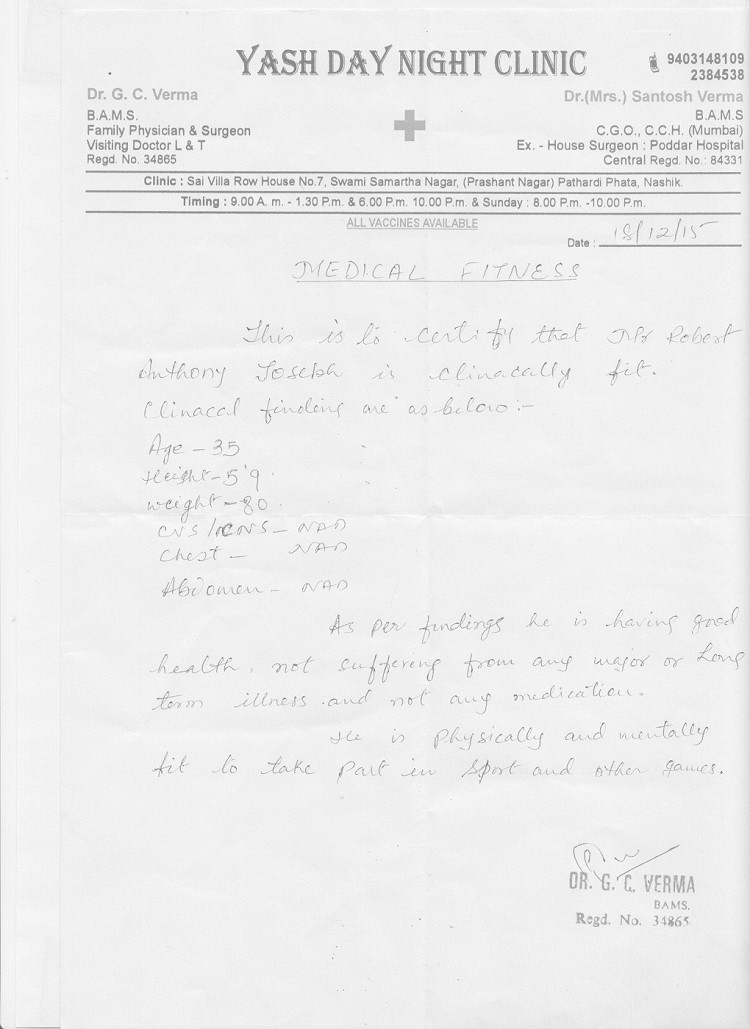 YASH DAY NIGHT CLINIC
9403148109
2384538
Dr. G. C. Verma
B.A.M.S.
Family Physician & Surgeon
Visiting Doctor L & T
Regd. No. 34865
Dr.(Mrs.) Santosh Verma
B.A.M.S
C.G.O., C.C.H. (Mumbai)
Ex. - House Surgeon : Poddar Hospital
Central Regd. No.: 84331
Clinic : Sai Villa Row House No.7, Swami Samartha Nagar, (Prashant Nagar) Pathardi Phata, Nashik.
Timing : 9.00 A. m. - 1.30 P.m. & 6.00 P.m. 10.00 P.m. & Sunday : 8.00 P.m. -10.00 P.m.
ALL VACCINES AVAILABLE
Date : 18/12/15
MEDICAL FITNESS
This is to certify that Mr Robert
Anthony Joseph is clinacally fit.
Clinacal finding are as below :-
Age - 35
Height - 5'9
weight - 80
CVS / CNS - NAD
Chest - NAD
Abdomen - NAD
As per findings he is having good
health. not suffering from any major or Long
term illness. and not any medication.
He is physically and mentally
fit to take part in sport and other games.
DR. G. C. VERMA
BAMS.
Regd. No. 34865